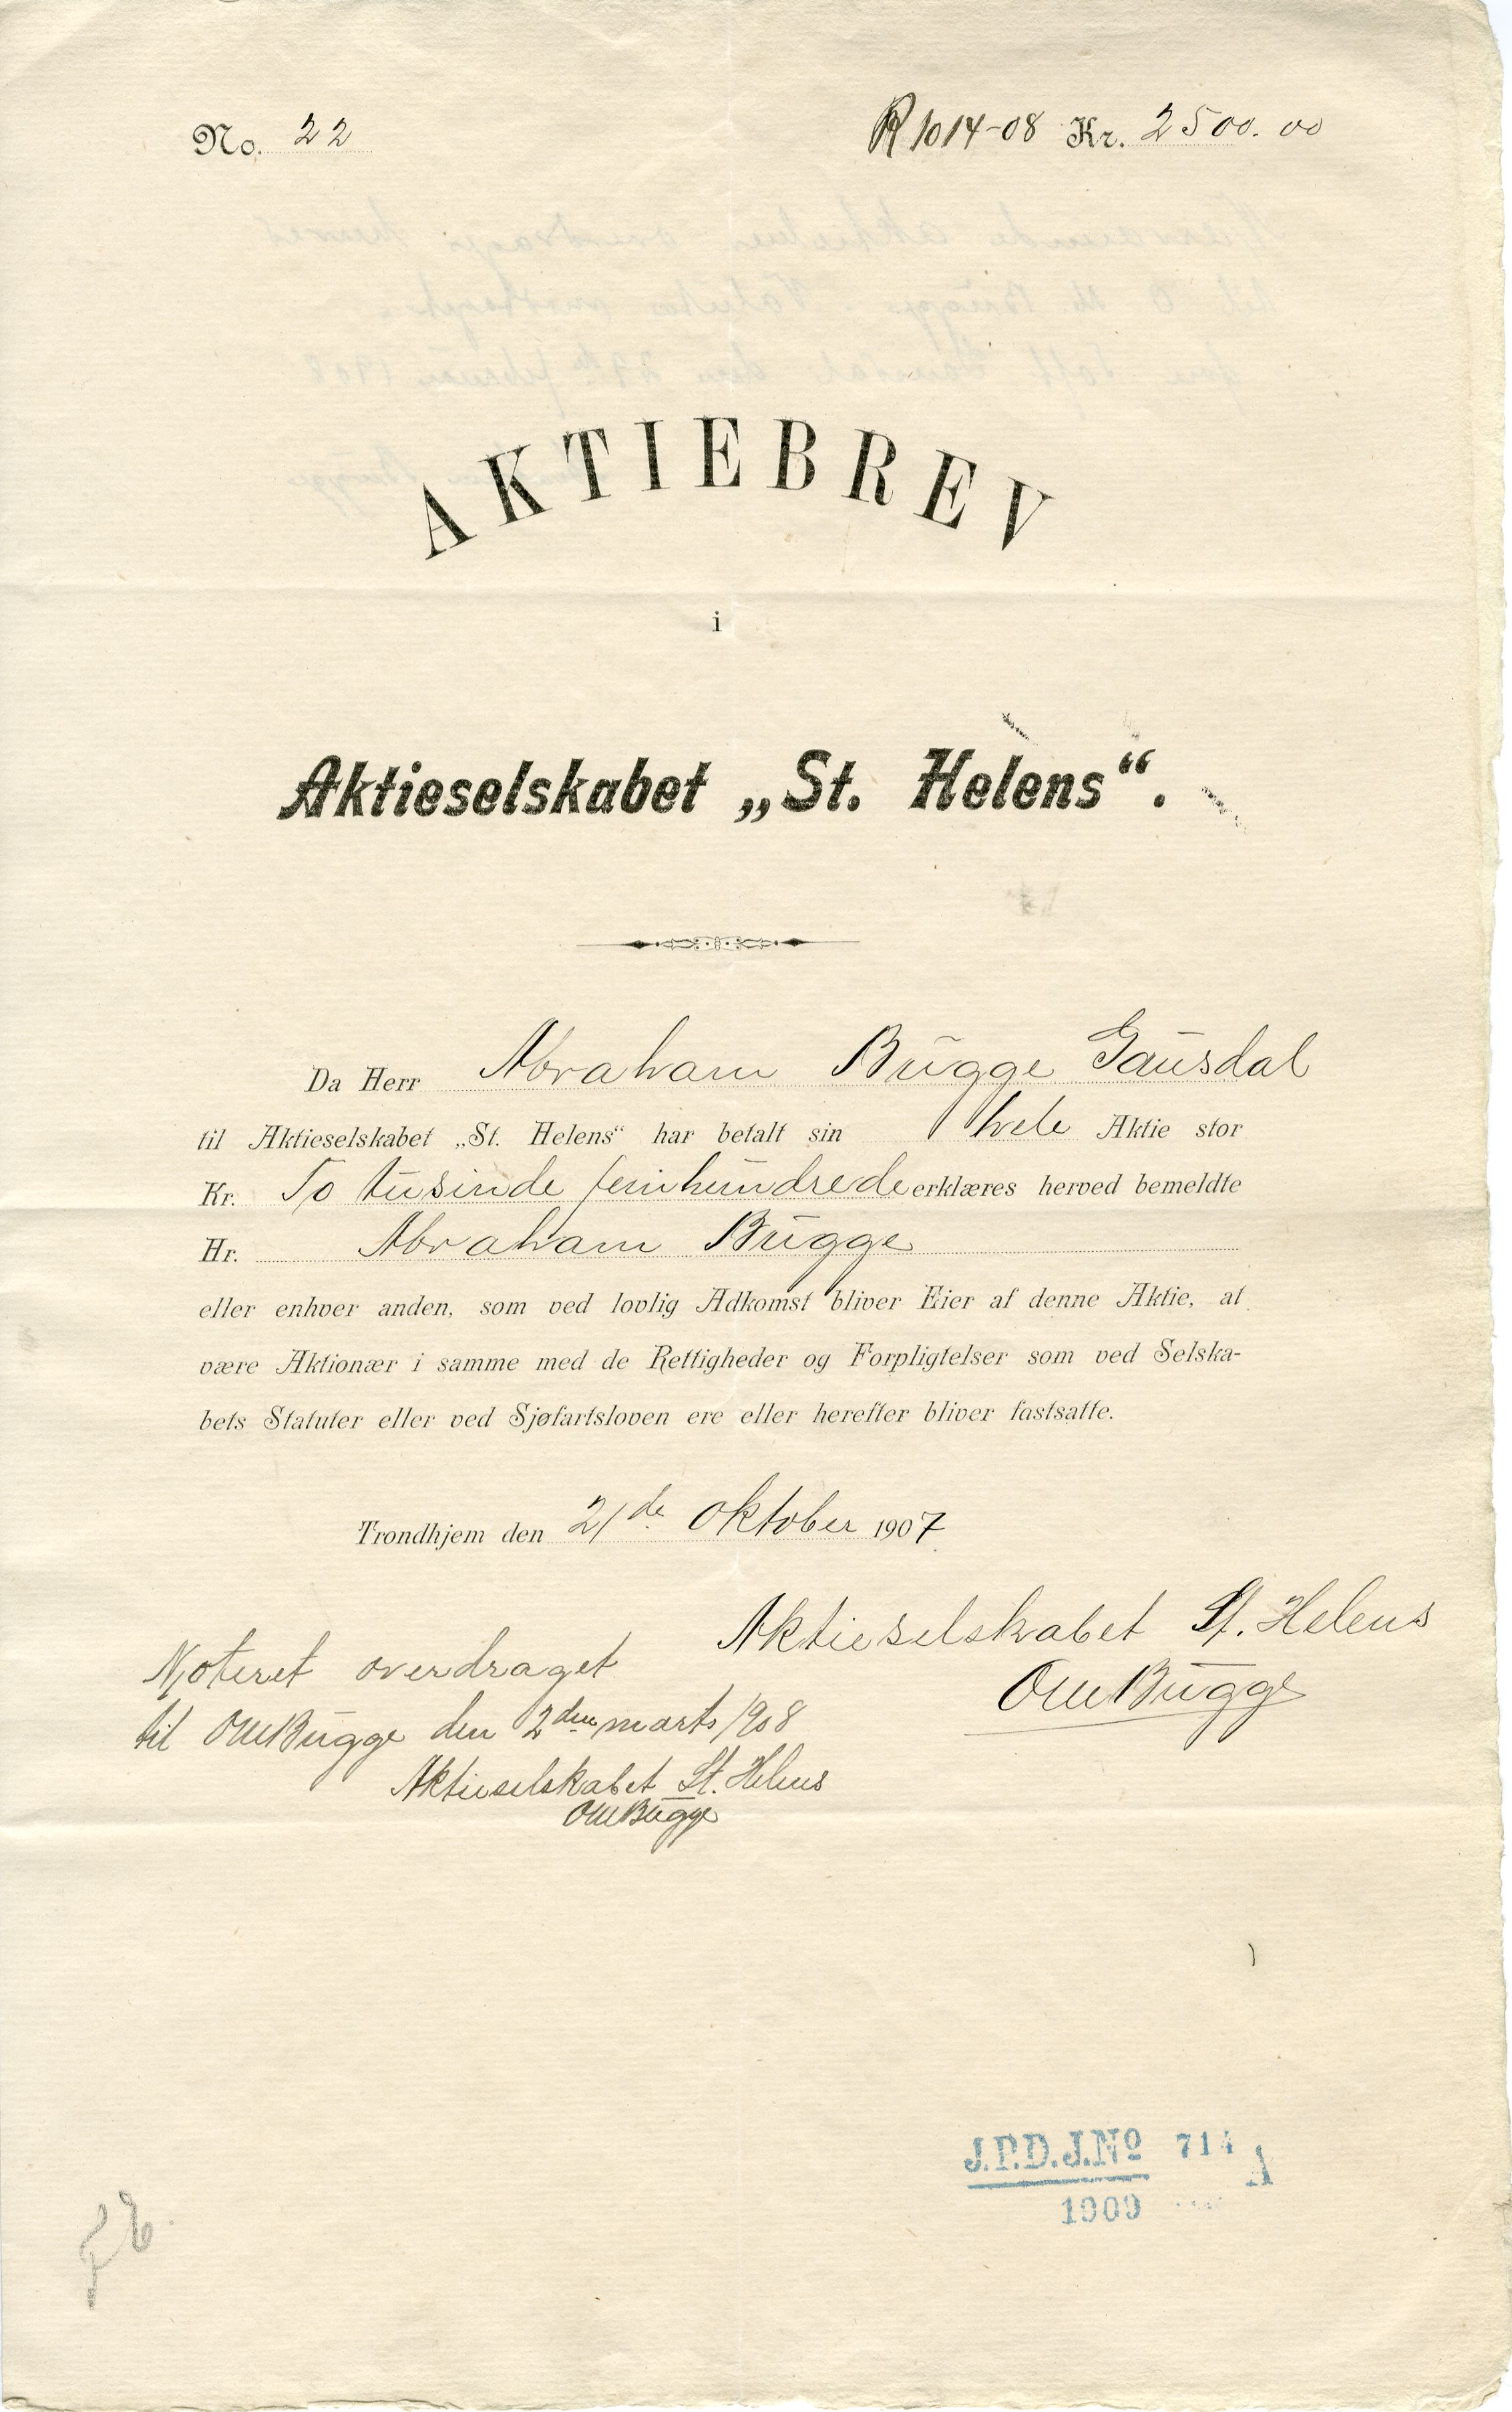 No. 22 R 1014-08 Kr. 2500.00
AKTIEBREV
i
Aktieselskabet „St. Helens“.
Da Herr Abraham Bugge Gausdal
til Aktieselskabet „St. Helens“ har betalt sin hele Aktie stor
Kr. To tusinde femhundrede erklæres herved bemeldte
Hr. Abraham Bugge
eller enhver anden, som ved lovlig Adkomst bliver Eier af denne Aktie, at
være Aktionær i samme med de Rettigheder og Forpligtelser som ved Selska-
bets Statuter eller ved Sjøfartsloven ere eller herefter bliver fastsatte.
Trondhjem den 21de oktober 1907
Aktieselskabet St. Helens
OMBugge
Noteret overdraget
til OMBugge den 2den marts 1908
Aktieselskabet St. Helens
OMBugge
J.P.D.J.Nº 714 A
1909